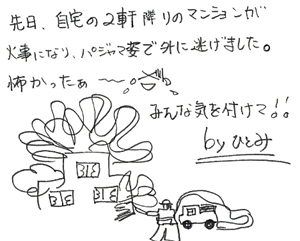 先日、自宅の2軒隣りのマンションが
火事になり、パジャマ姿で外に逃げました。
怖かったぁ〜〜
みんな気を付けて!!
byひとみ